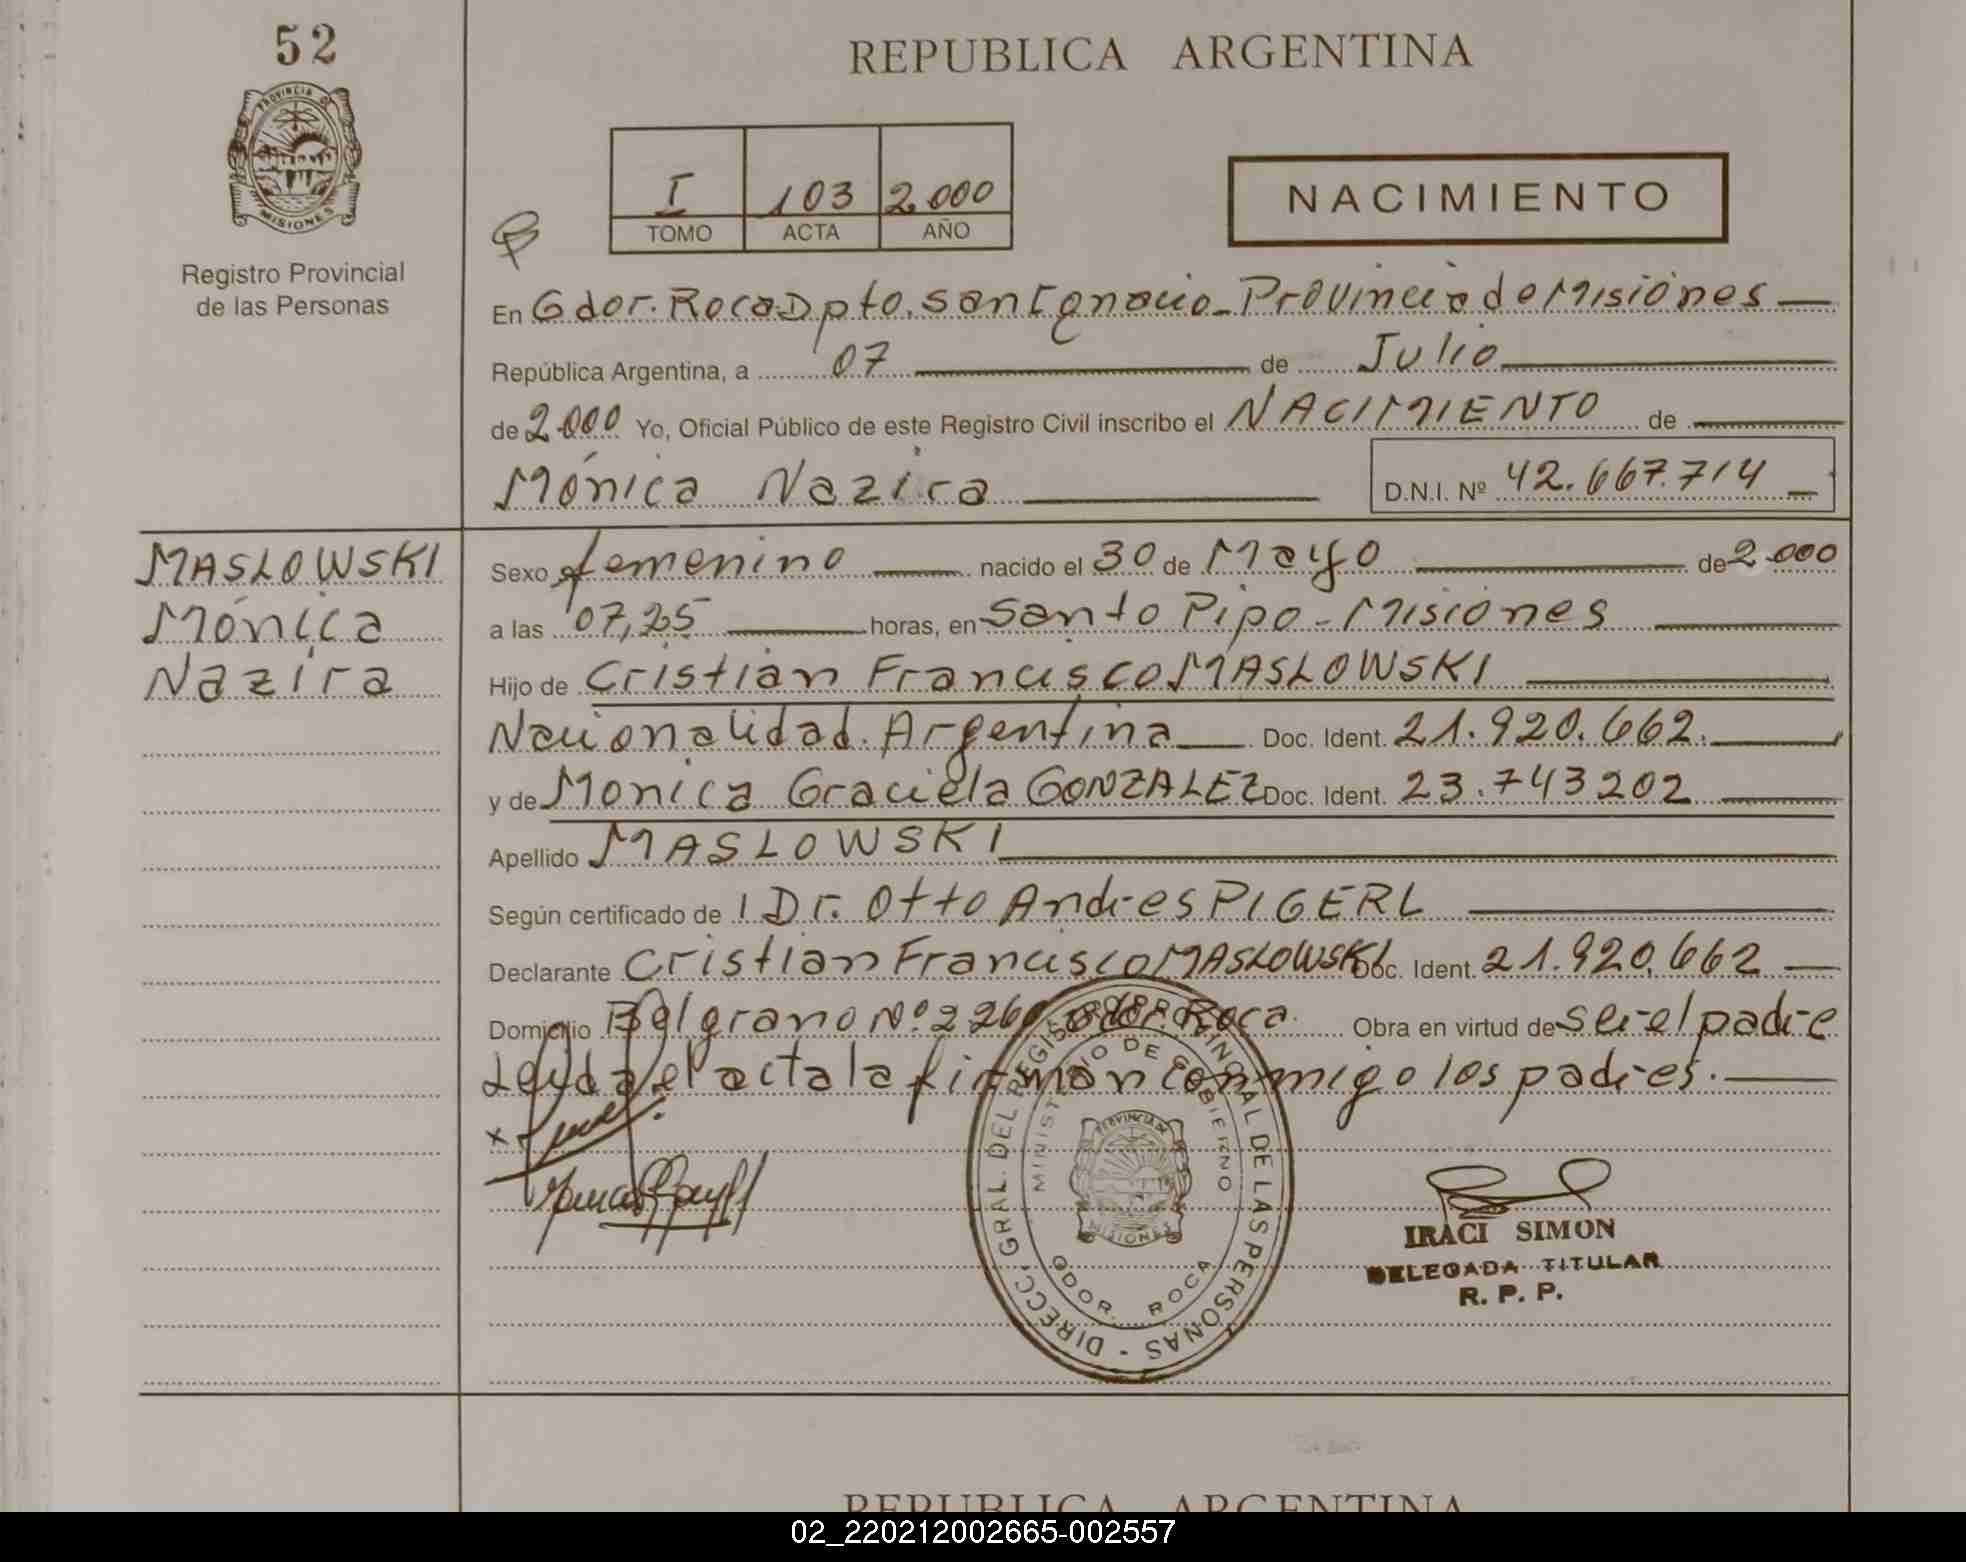 52
PROVINCIA DE
MISIONES
Registro Provincial
de las Personas
REPUBLICA ARGENTINA
I 103 2.000
TOMO ACTA AÑO
NACIMIENTO
En Gdor. Roca Dpto. San Ignacio - Provincia de Misiones
República Argentina, a 07 de Julio
de 2.000 Yo, Oficial Público de este Registro Civil inscribo el NACIMIENTO de
Mónica Nazira D.N.I. Nº 42.667.714
MASLOWSKI
Mónica
Nazira
Sexo femenino nacido el 30 de Mayo de 2.000
a las 07,25 horas, en Santo Pipo - Misiones
Hijo de Cristian Francisco MASLOWSKI
Nacionalidad. Argentina Doc. Ident. 21.920.662.
y de Monica Graciela GONZALEZ Doc. Ident. 23.743202
Apellido MASLOWSKI
Según certificado de 1 Dr. Otto Andres PIGERL
Declarante Cristian Francisco MASLOWSKI Doc. Ident. 21.920.662
Domicilio Belgrano Nº 226 Gdor. Roca. Obra en virtud de ser el padre
Leida el acta la firman conmigo los padres.
x
DIRECC. GRAL. DEL REGISTRO PROVINCIAL DE LAS PERSONAS -
MINISTERIO DE GOBIERNO
PROVINCIA DE
MISIONES
GDOR. ROCA
IRACI SIMON
DELEGADA TITULAR
R. P. P.
REPUBLICA ARGENTINA
02_220212002665-002557